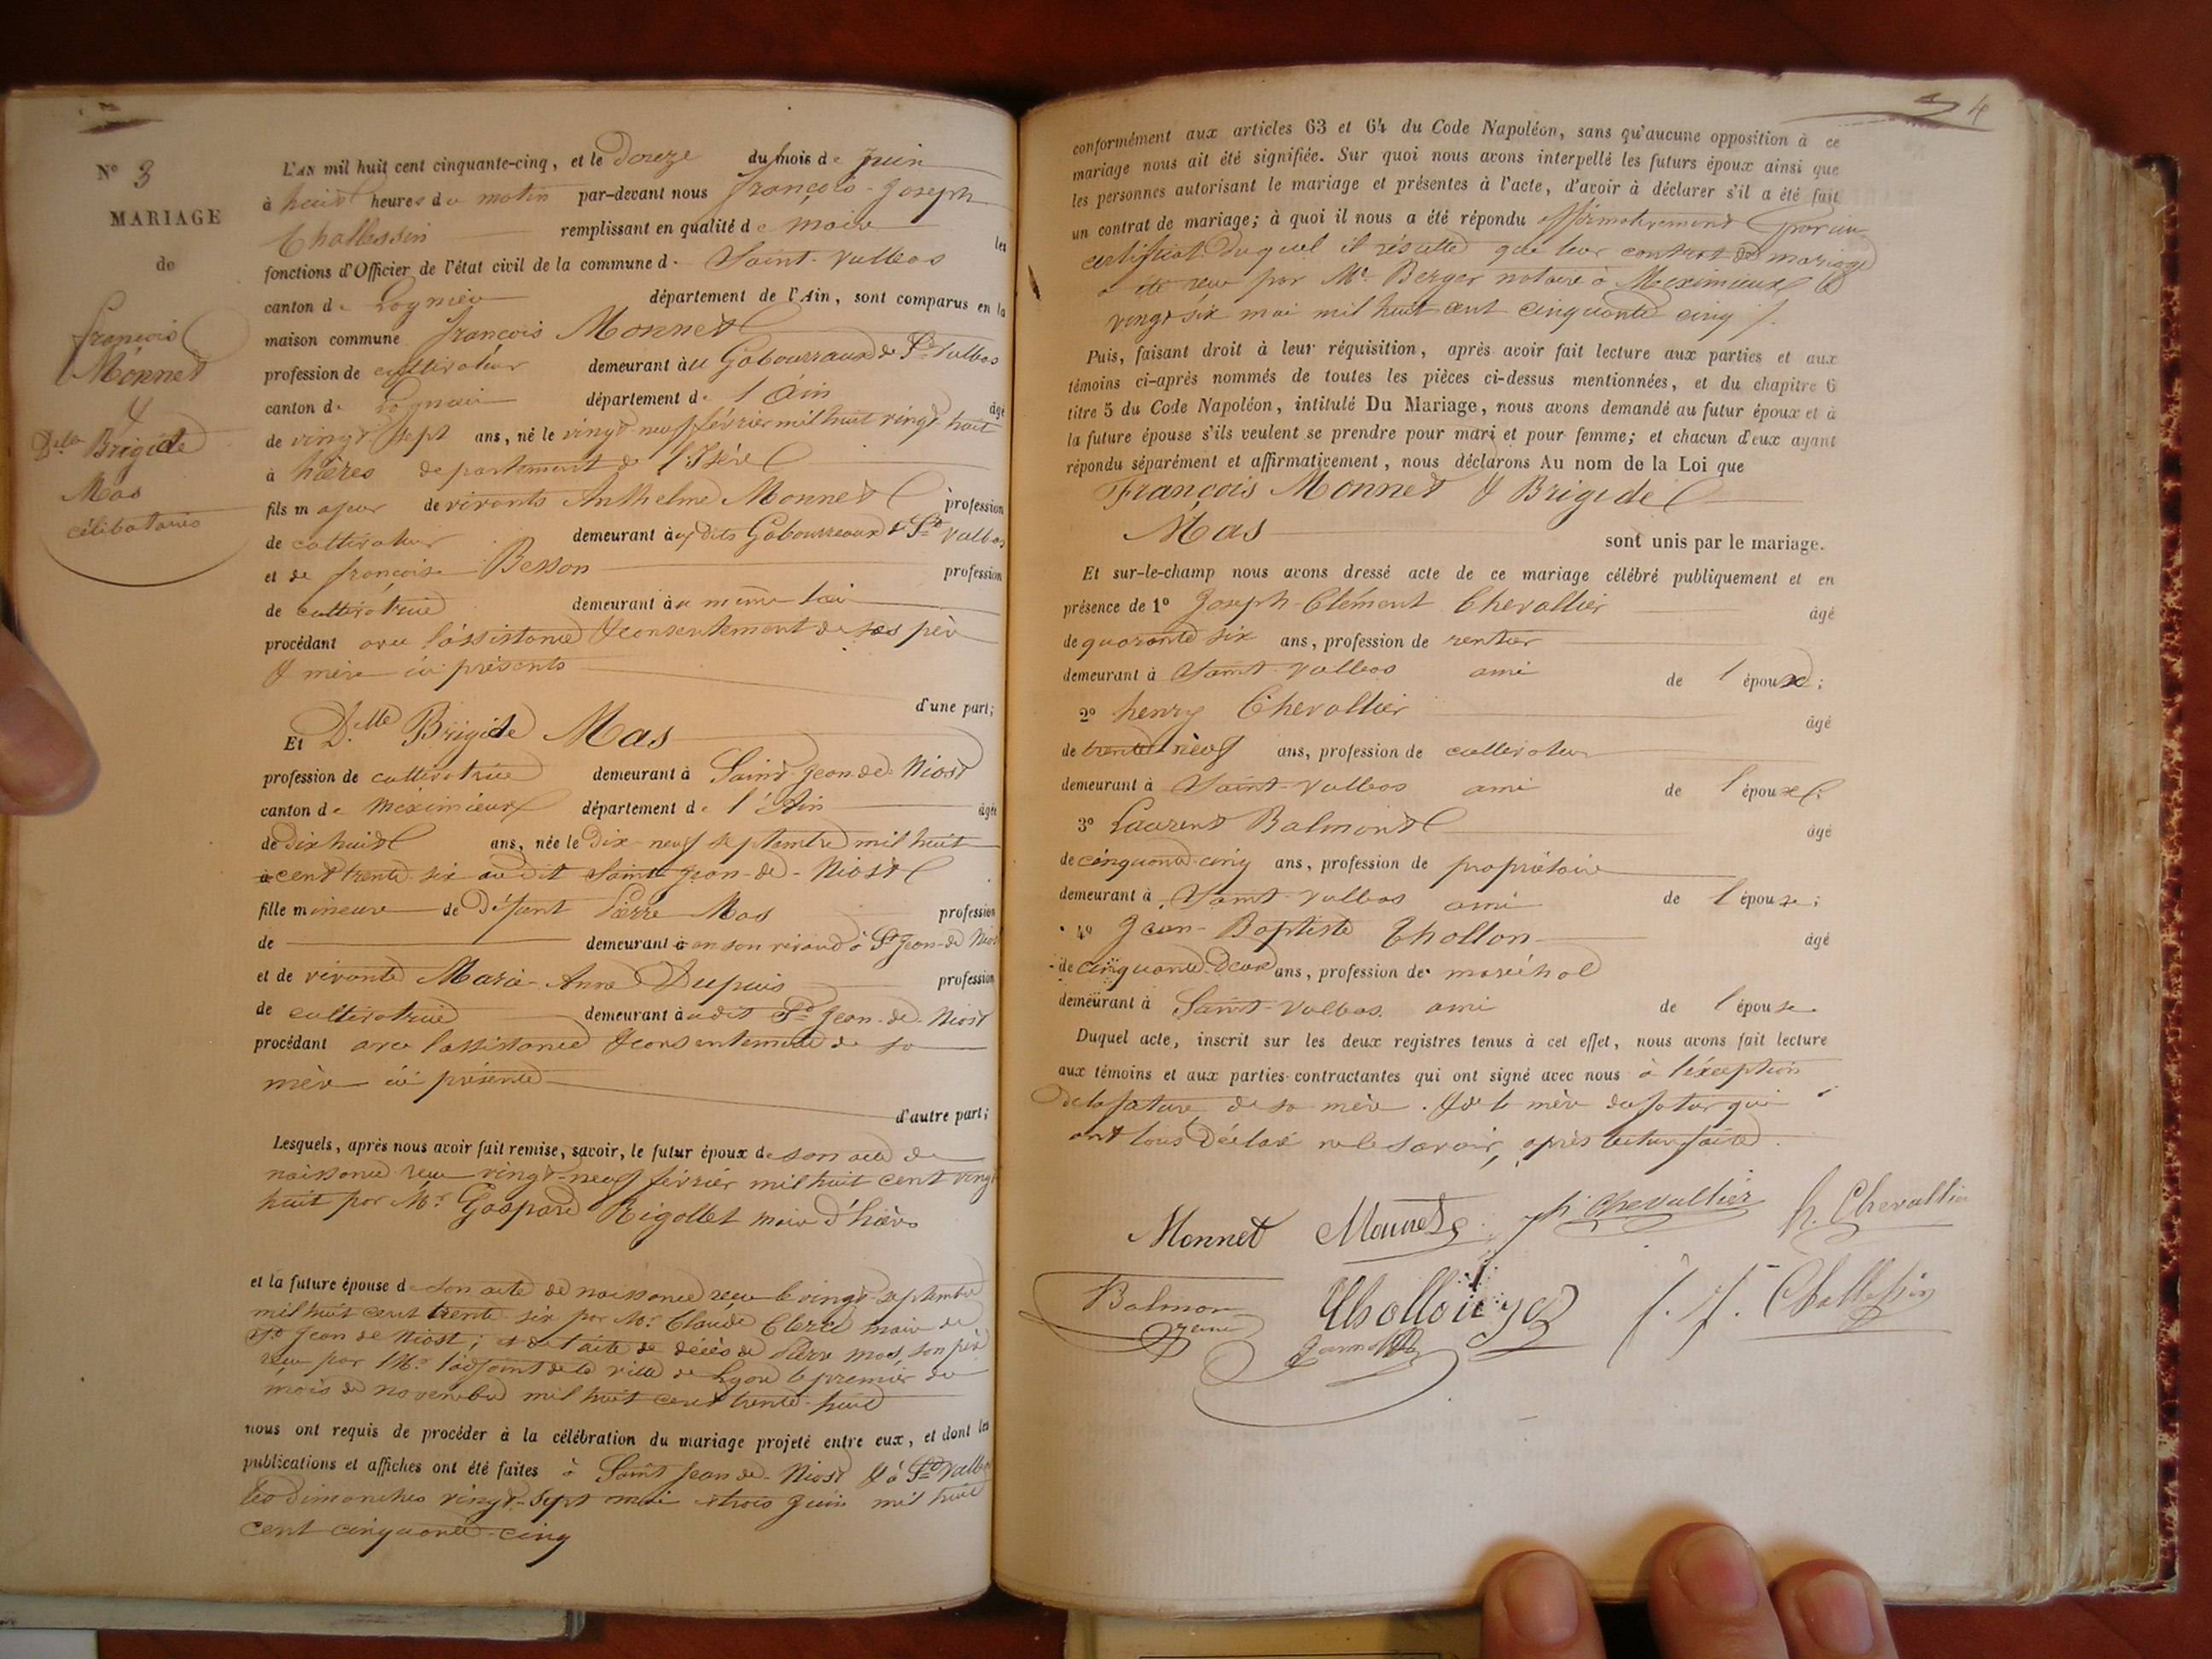 N° 3
MARIAGE
de
François
Monnet
&
Dlle Brigide
Mas
célibataires
L'AN mil huit cent cinquante-cinq, et le Douze du mois de Juin
à huit heures du matin par-devant nous François-Joseph
Challessin remplissant en qualité de maire les
fonctions d'Officier de l'état civil de la commune d. Saint-Vulbas
canton de Lagnieu département de l'Ain, sont comparus en la
maison commune François Monnet
profession de cultivateur demeurant au Gabourraux de St Vulbas
canton de Lagnieu département de l'Ain âgé
de vingt sept ans, né le vingt neuf février mil huit vingt huit
à hières département de l'Isère
fils majeur de vivants Anthelme Monnet profession
de cultivateur demeurant auxdits Gabourreaux de St Vulbas
et de françoise Besson profession
de cultivatrice demeurant au même lieu
procédant avec l'assistance & consentement de ses père
& mère ici présents
d'une part;
Et Dlle Brigide Mas
profession de cultivatrice demeurant à Saint-Jean-de-Niost
canton de Meximieux département de l'Ain âgée
de Dix huit ans, née le Dix-neuf septembre mil huit
cent trente-six audit Saint Jean-de-Niost
fille mineure de Défunt Pierre Mas profession
de demeurant en son vivant à St Jean-de Niost
et de vivante Marie-Anne Dupuis profession
de cultivatrice demeurant audit St Jean-de-Niost
procédant avec l'assistance & consentement de sa
mère ici présente
d'autre part;
Lesquels, après nous avoir fait remise, savoir, le futur époux de son acte de
naissance reçu vingt-neuf février mil huit cent vingt
huit par Mr Gaspard Rigollet maire d'hières
et la future épouse de son acte de naissance reçu le vingt septembre
mil huit cent trente six par Mr Claude Clerc maire de
St Jean de Niost; et de l'acte de décès de Pierre Mas, son père
reçu par Mr l'adjoint de la ville de Lyon le premier du
mois de novembre mil huit cent trente-huit
nous ont requis de procéder à la célébration du mariage projeté entre eux, et dont les
publications et affiches ont été faites à Saint Jean de-Niost & à St Vulbas
les dimanches vingt-sept mai & trois Juin mil huit
cent cinquante-cinq
4
conformément aux articles 63 et 64 du Code Napoléon, sans qu'aucune opposition à ce
mariage nous ait été signifiée. Sur quoi nous avons interpellé les futurs époux ainsi que
les personnes autorisant le mariage et présentes à l'acte, d'avoir à déclarer s'il a été fait
un contrat de mariage; à quoi il nous a été répondu affirmativement par un
certificat duquel il résulte que leur contrat de mariage
a été reçu par Me Berger notaire à Meximieux le
vingt six mai mil huit cent cinquante cinq
Puis, faisant droit à leur réquisition, après avoir fait lecture aux parties et aux
témoins ci-après nommés de toutes les pièces ci-dessus mentionnées, et du chapitre 6
titre 5 du Code Napoléon, intitulé Du Mariage, nous avons demandé au futur époux et à
la future épouse s'ils veulent se prendre pour mari et pour femme; et chacun d'eux ayant
répondu séparément et affirmativement, nous déclarons Au nom de la Loi que
François Monnet & Brigide
Mas sont unis par le mariage.
Et sur-le-champ nous avons dressé acte de ce mariage célébré publiquement et en
présence de 1° Joseph-Clément Chevallier âgé
de quarante six ans, profession de rentier
demeurant à Saint-Vulbas ami de l'époux;
2° henry Chevallier âgé
de trente neuf ans, profession de cultivateur
demeurant à Saint-Vulbas ami de l'époux;
3° Laurent Balmont âgé
de cinquante-cinq ans, profession de propriétaire
demeurant à Saint-Vulbas ami de l'épouse;
4° Jean-Baptiste Thollon âgé
de cinquante-Deux ans, profession de maréchal
demeurant à Saint-Vulbas ami de l'épouse
Duquel acte, inscrit sur les deux registres tenus à cet effet, nous avons fait lecture
aux témoins et aux parties contractantes qui ont signé avec nous à l'exception
de la future, de sa mère. & de la mère du futur qui
ont tous Déclaré ne le savoir, après lecture faite.
Monnet Monnet Chevallier h. Chevallier
Balmon Thollon f. J. Challessin